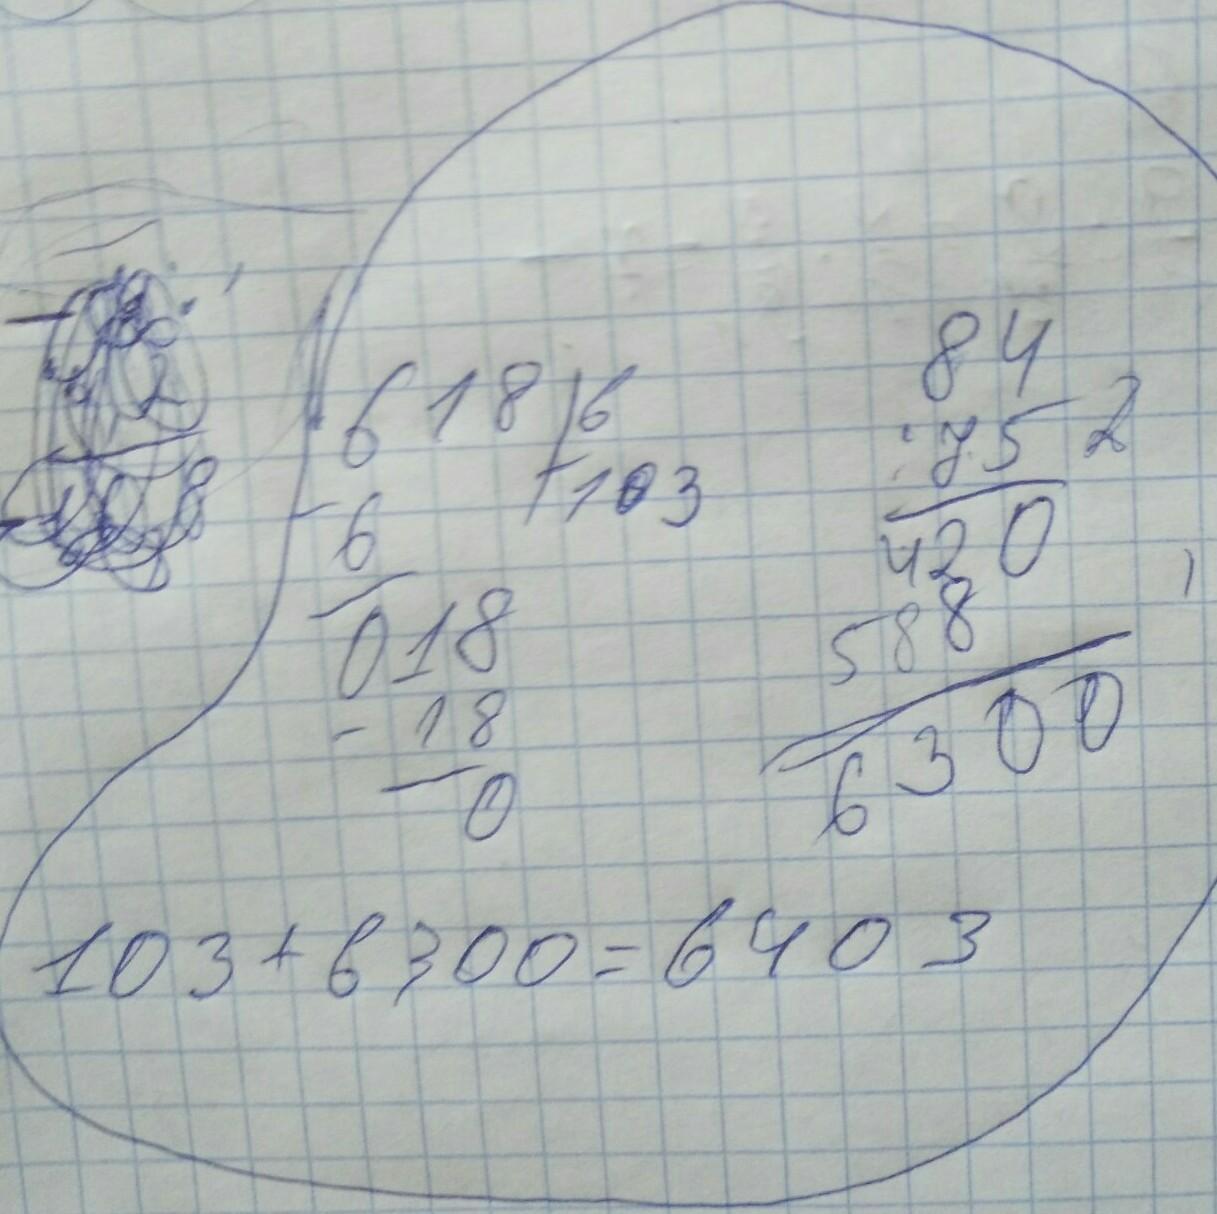 618 6
103
- 6
018
- 18
0
84
: 75 2
420
588
6300
103+6300=6403